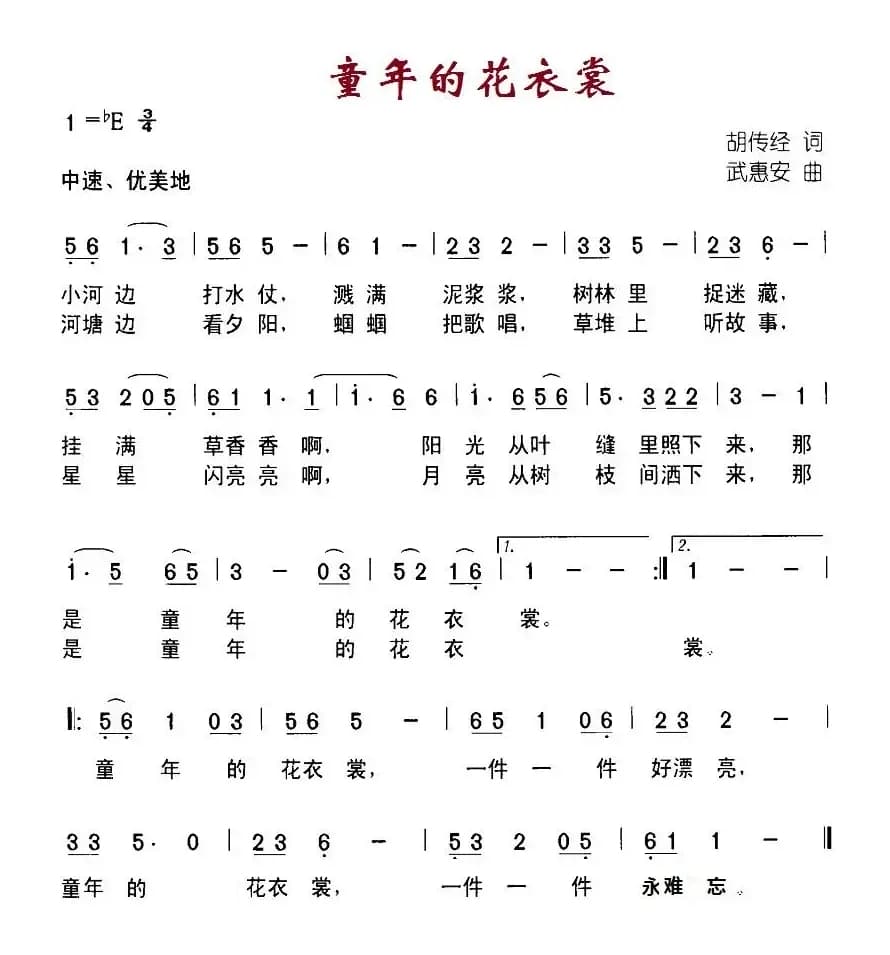 童年的花衣裳
1=♭E 3/4
胡传经 词
中速、优美地
武惠安 曲
5 6 1· 3 | 5 6 5 - | 6 1 - | 2 3 2 - | 3 3 5 - | 2 3 6 - |
小河 边 打水 仗， 溅 满 泥浆 浆， 树林 里 捉迷 藏，
河塘 边 看夕 阳， 蝈 蝈 把歌 唱， 草堆 上 听故 事，
5 3 2 0 5 | 6 1 1· 1 | 1· 6 6 | 1· 6 5 6 | 5· 3 2 2 | 3 - 1 |
挂 满 草香 香 啊， 阳 光 从叶 缝 里照下 来，那
星 星 闪亮 亮 啊， 月 亮 从树 枝 间洒下 来，那
1· 5 6 5 | 3 - 0 3 | 5 2 1 6 | 1. 1 - - :‖ 2. 1 - - |
是 童 年 的 花 衣 裳。
是 童 年 的 花 衣 裳。
‖: 5 6 1 0 3 | 5 6 5 - | 6 5 1 0 6 | 2 3 2 - |
童 年 的 花衣 裳， 一件 一 件 好漂 亮，
3 3 5· 0 | 2 3 6 - | 5 3 2 0 5 | 6 1 1 - ‖
童年 的 花衣 裳， 一件 一 件 永难 忘。